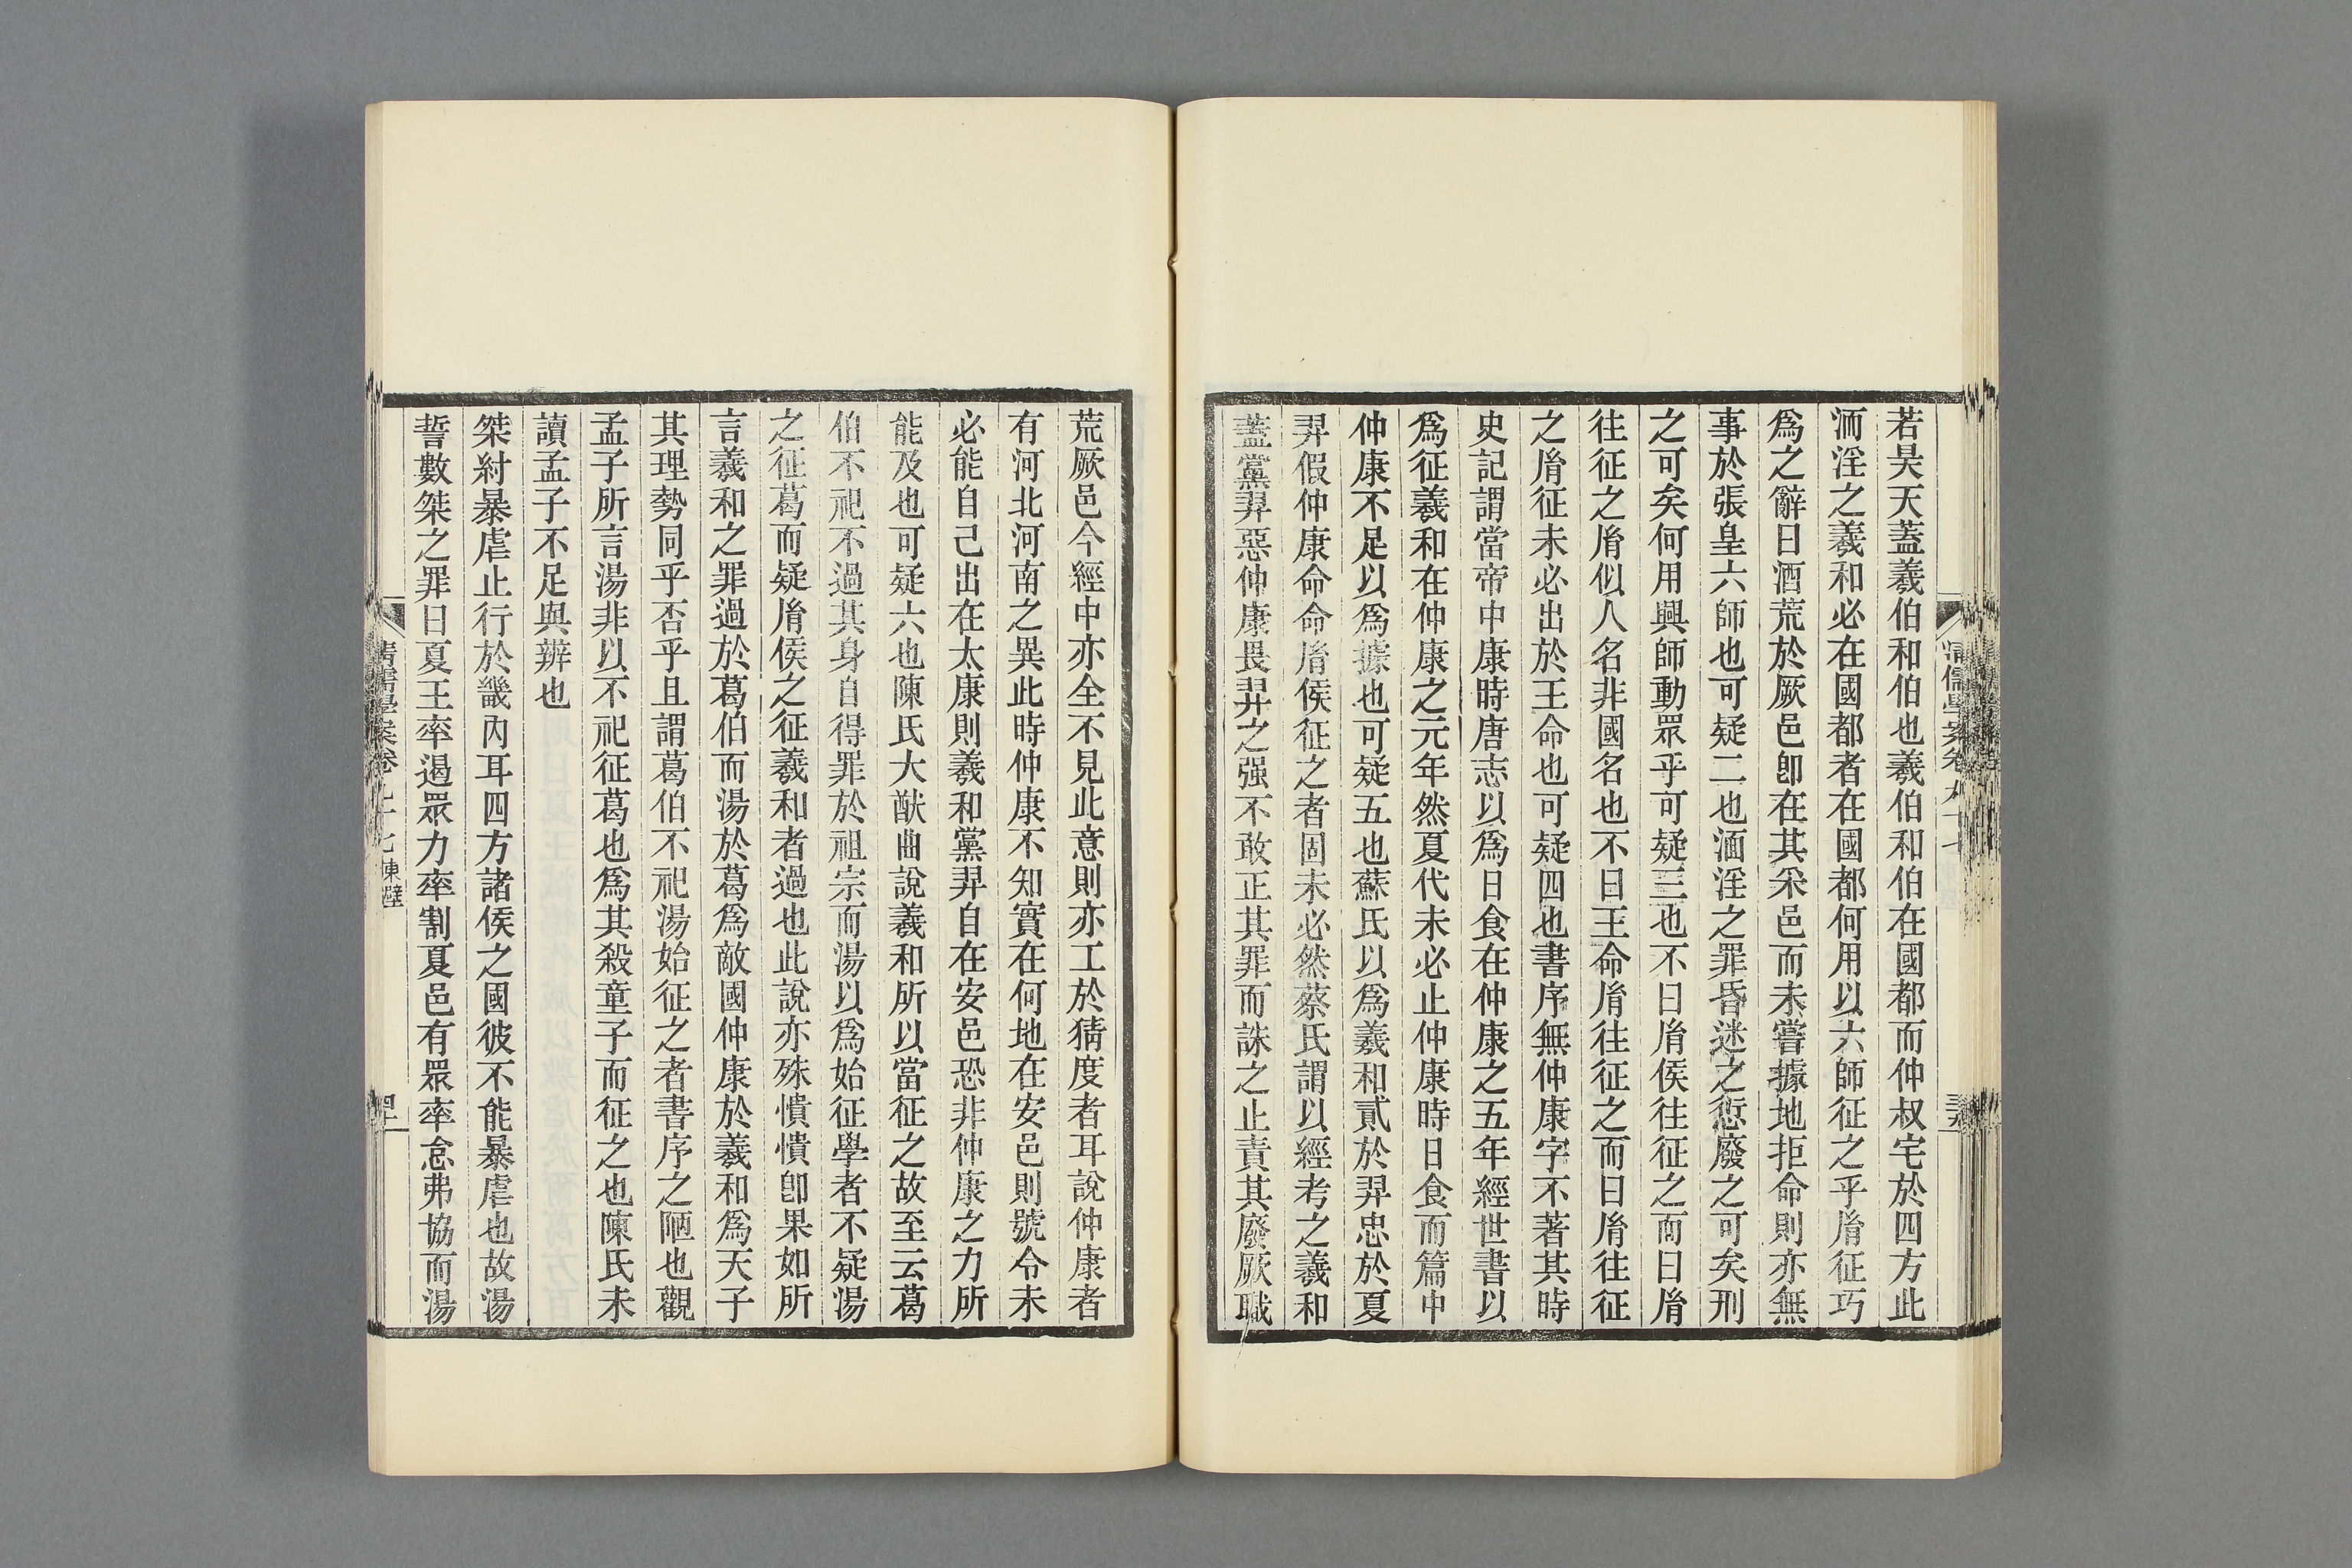 若昊天蓋羲伯和伯也羲伯和伯在國都而仲叔宅於四方此
湎淫之羲和必在國都者在國都何用以六師征之乎胤征巧
爲之辭曰酒荒於厥邑卽在其采邑而未嘗據地拒命則亦無
事於張皇六師也可疑二也湎淫之罪昏迷之愆廢之可矣刑
之可矣何用興師動眾乎可疑三也不曰胤侯往征之而曰胤
往征之胤似人名非國名也不曰王命胤往征之而曰胤往征
之胤征未必出於王命也可疑四也書序無仲康字不著其時
史記謂當帝中康時唐志以爲日食在仲康之五年經世書以
爲征羲和在仲康之元年然夏代未必止仲康時日食而篇中
仲康不足以爲據也可疑五也蘇氏以爲羲和貳於羿忠於夏
羿假仲康命命胤侯征之者固未必然蔡氏謂以經考之羲和
蓋黨羿惡仲康畏羿之强不敢正其罪而誅之止責其廢厥職
荒厥邑今經中亦全不見此意則亦工於猜度者耳說仲康者
有河北河南之異此時仲康不知實在何地在安邑則號令未
必能自己出在太康則羲和黨羿自在安邑恐非仲康之力所
能及也可疑六也陳氏大猷曲說羲和所以當征之故至云葛
伯不祀不過其身自得罪於祖宗而湯以爲始征學者不疑湯
之征葛而疑胤侯之征羲和者過也此說亦殊憒憒卽果如所
言羲和之罪過於葛伯而湯於葛爲敵國仲康於羲和爲天子
其理勢同乎否乎且謂葛伯不祀湯始征之者書序之陋也觀
孟子所言湯非以不祀征葛也爲其殺童子而征之也陳氏未
讀孟子不足與辨也
桀紂暴虐止行於畿內耳四方諸侯之國彼不能暴虐也故湯
誓數桀之罪曰夏王率遏眾力率割夏邑有眾率怠弗協而湯
清儒學案卷